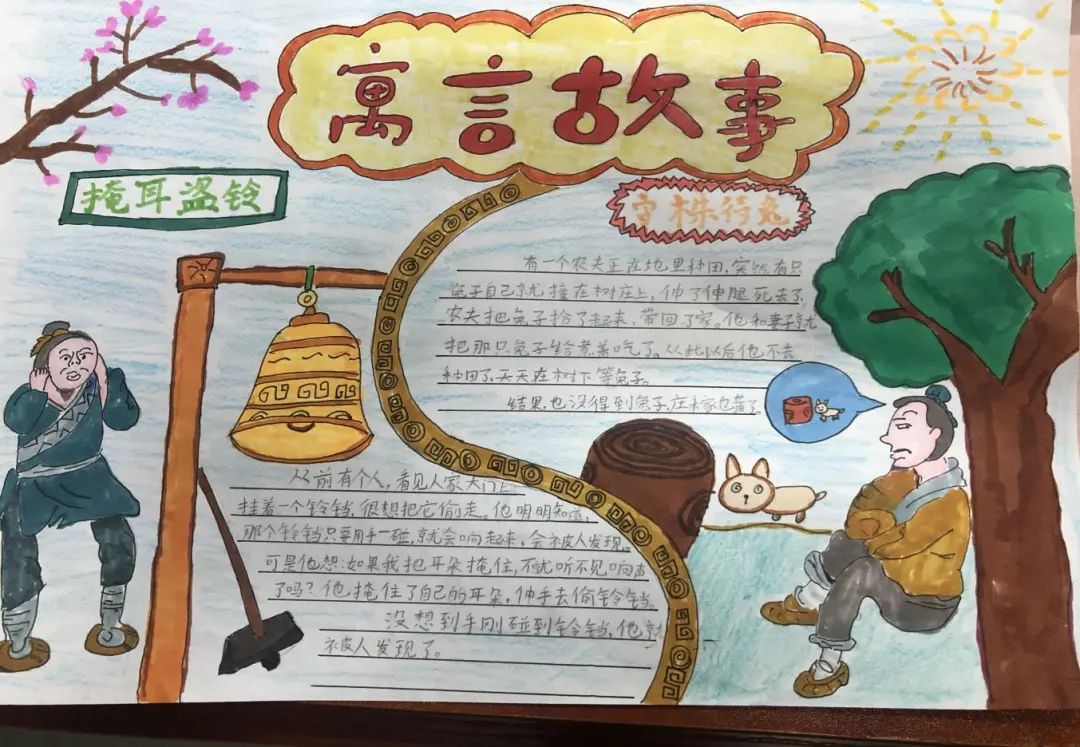 寓言故事
掩耳盗铃
守株待兔
有一个农夫正在地里种田,突然有只
兔子自己就撞在树庄上,伸了伸腿死去了.
农夫把兔子拾了起来,带回了家。他和妻子就
把那只兔子给煮着吃了。从此以后他不去
种田了,天天在树下等兔子。
结果,也没得到兔子,庄禾家也荒了
从前有个人,看见人家大门上
挂着一个铃铛,很想把它偷走。他明明知道,
那个铃铛只要用手一碰,就会响起来,会被人发现。
可是他想:如果我把耳朵掩住,不就听不见响声
了吗?他掩住了自己的耳朵,伸手去偷铃铛.
没想到手刚碰到铃铛,他就
被人发现了。